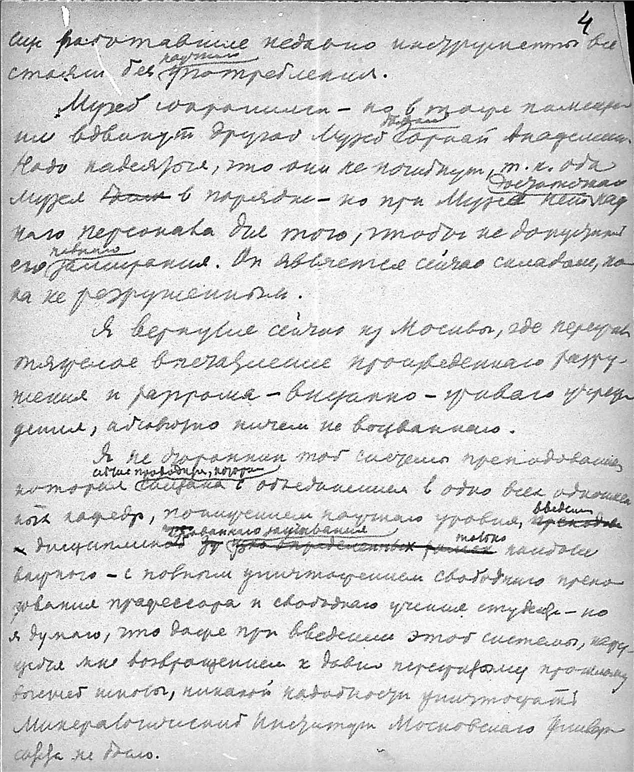 4
еще работавшие недавно инструменты все
стояли без научного употребления.
Музей сохранился – но в то же помеще-
ние вдвинут другой Музей Горной Академии.
Надо надеяться, что они не погибнут, т.к. оба
музея в порядке – но при Музее нет достаточно
наго персонала для того, чтобы не допустить
его полного замирания. Он является сейчас складом, по-
ка не разрушенным.
Я вернулся сейчас из Москвы, где пережил
тяжелое впечатление произведеннаго разру-
шения и разгрома – внезапно – живаго учреж-
дения, абсолютно ничем не вызваннаго.
Я не сторонник той системы преподавания,
которая сейчас проводится, которая связана с объединением в одно всех одноимен-
ных кафедр, понижением научнаго уровня, введением
дисциплинованнаго заучивания только наиболее
важного – с полным уничтожением свободнаго препо-
давания профессора и свободнаго учения студента – но
я думаю, что даже при введении этой системы,
мне возвращением к давно пережитому прошлому
высшей школы, никакой надобности уничтожать
Минералогический Институт Московскаго Универ-
ситета не было.